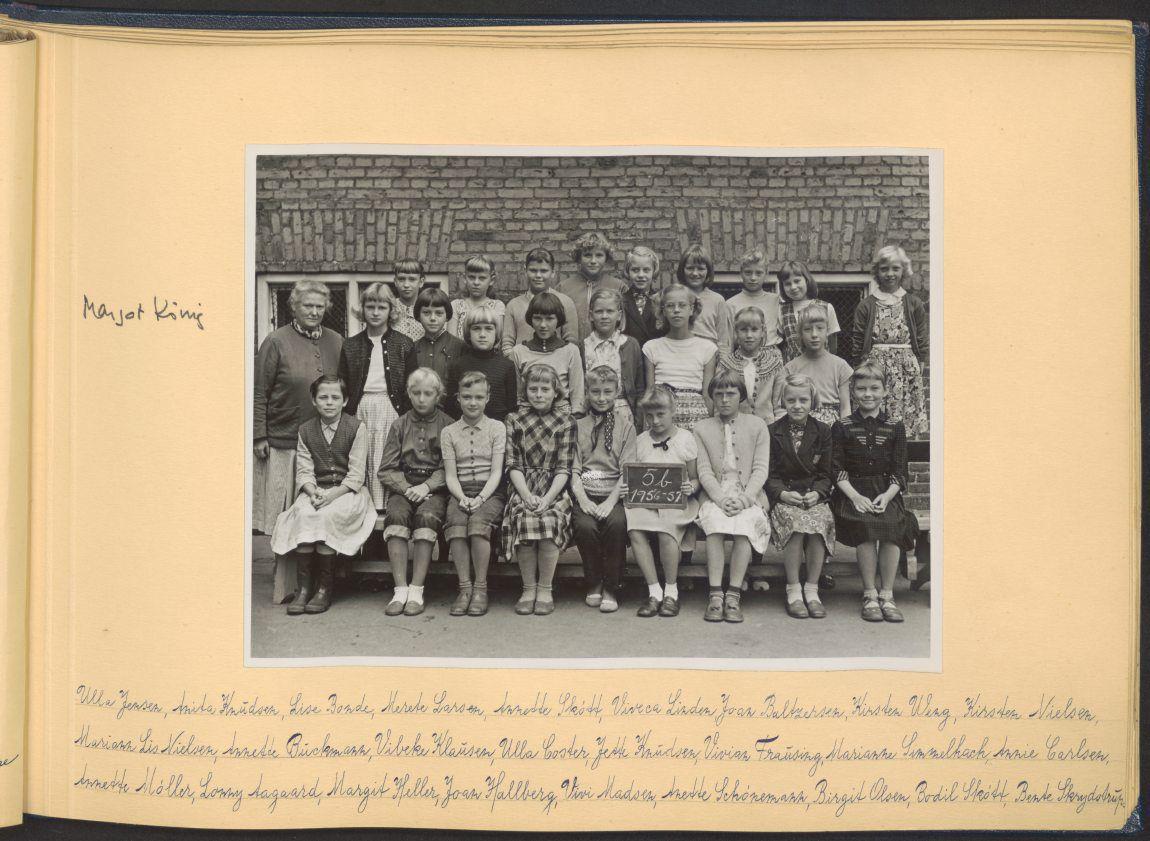 Margot König
5b
1956-57
Ulla Jensen, Anita Knudsen, Lise Bonde, Merete Larsen, Annette Skött, Viveca Linden, Joan Baltzersen, Kirsten Weng, Kirsten Nielsen,
Mariann Lis Nielsen, Annette Buckmann, Vibeke Klausen, Ulla Coster, Jette Knudsen, Vivian Frausing, Marianne Simmelhach, Annie Carlsen,
Annette Möller, Lonny Aagaard, Margit Heller, Joan Hallberg, Vivi Madsen, Anette Schönemann, Birgit Olsen, Bodil Skött, Bente Skrydstrup.